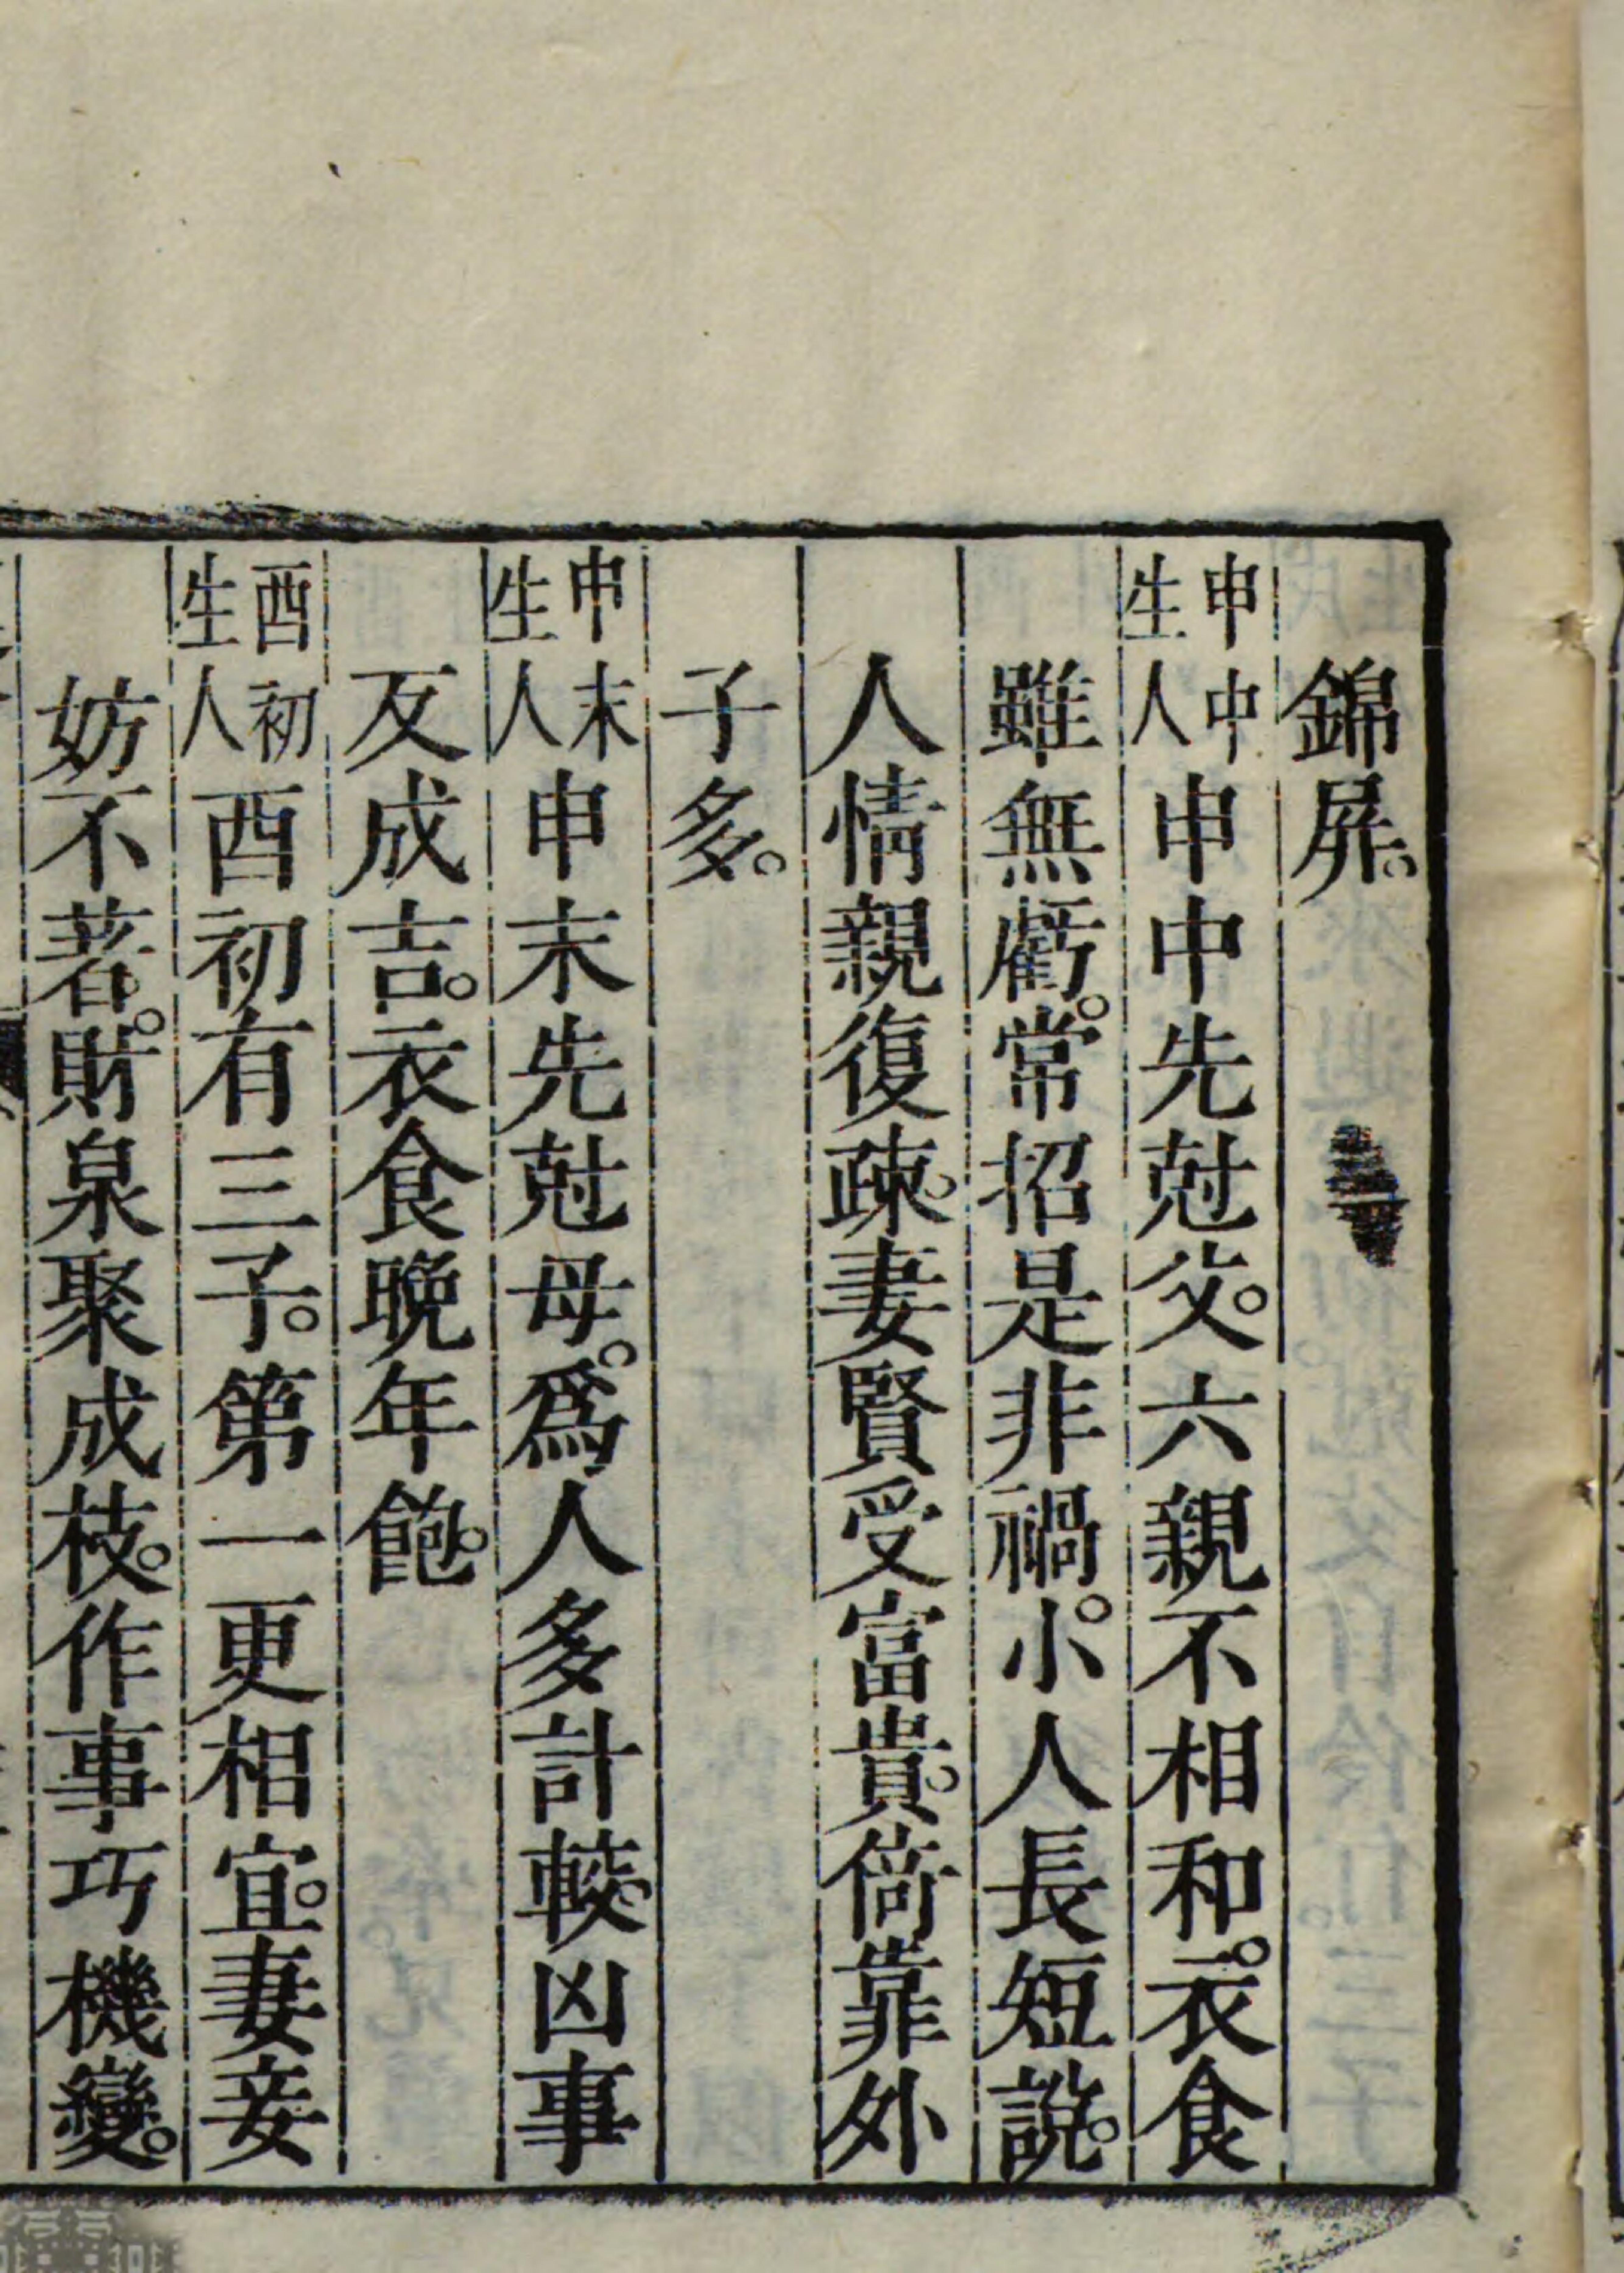 錦屏。
申中生人申中先尅父。六親不相和。衣食
雖無虧。常招是非禍。小人長短說。
人情親復疎。妻賢受富貴。倚靠外
子多。
申末生人申末先尅母。爲人多計較。凶事
反成吉。衣食晚年飽。
酉初生人酉初有三子。第一更相宜。妻妾
妨不著。財泉聚成枝。作事巧機變。